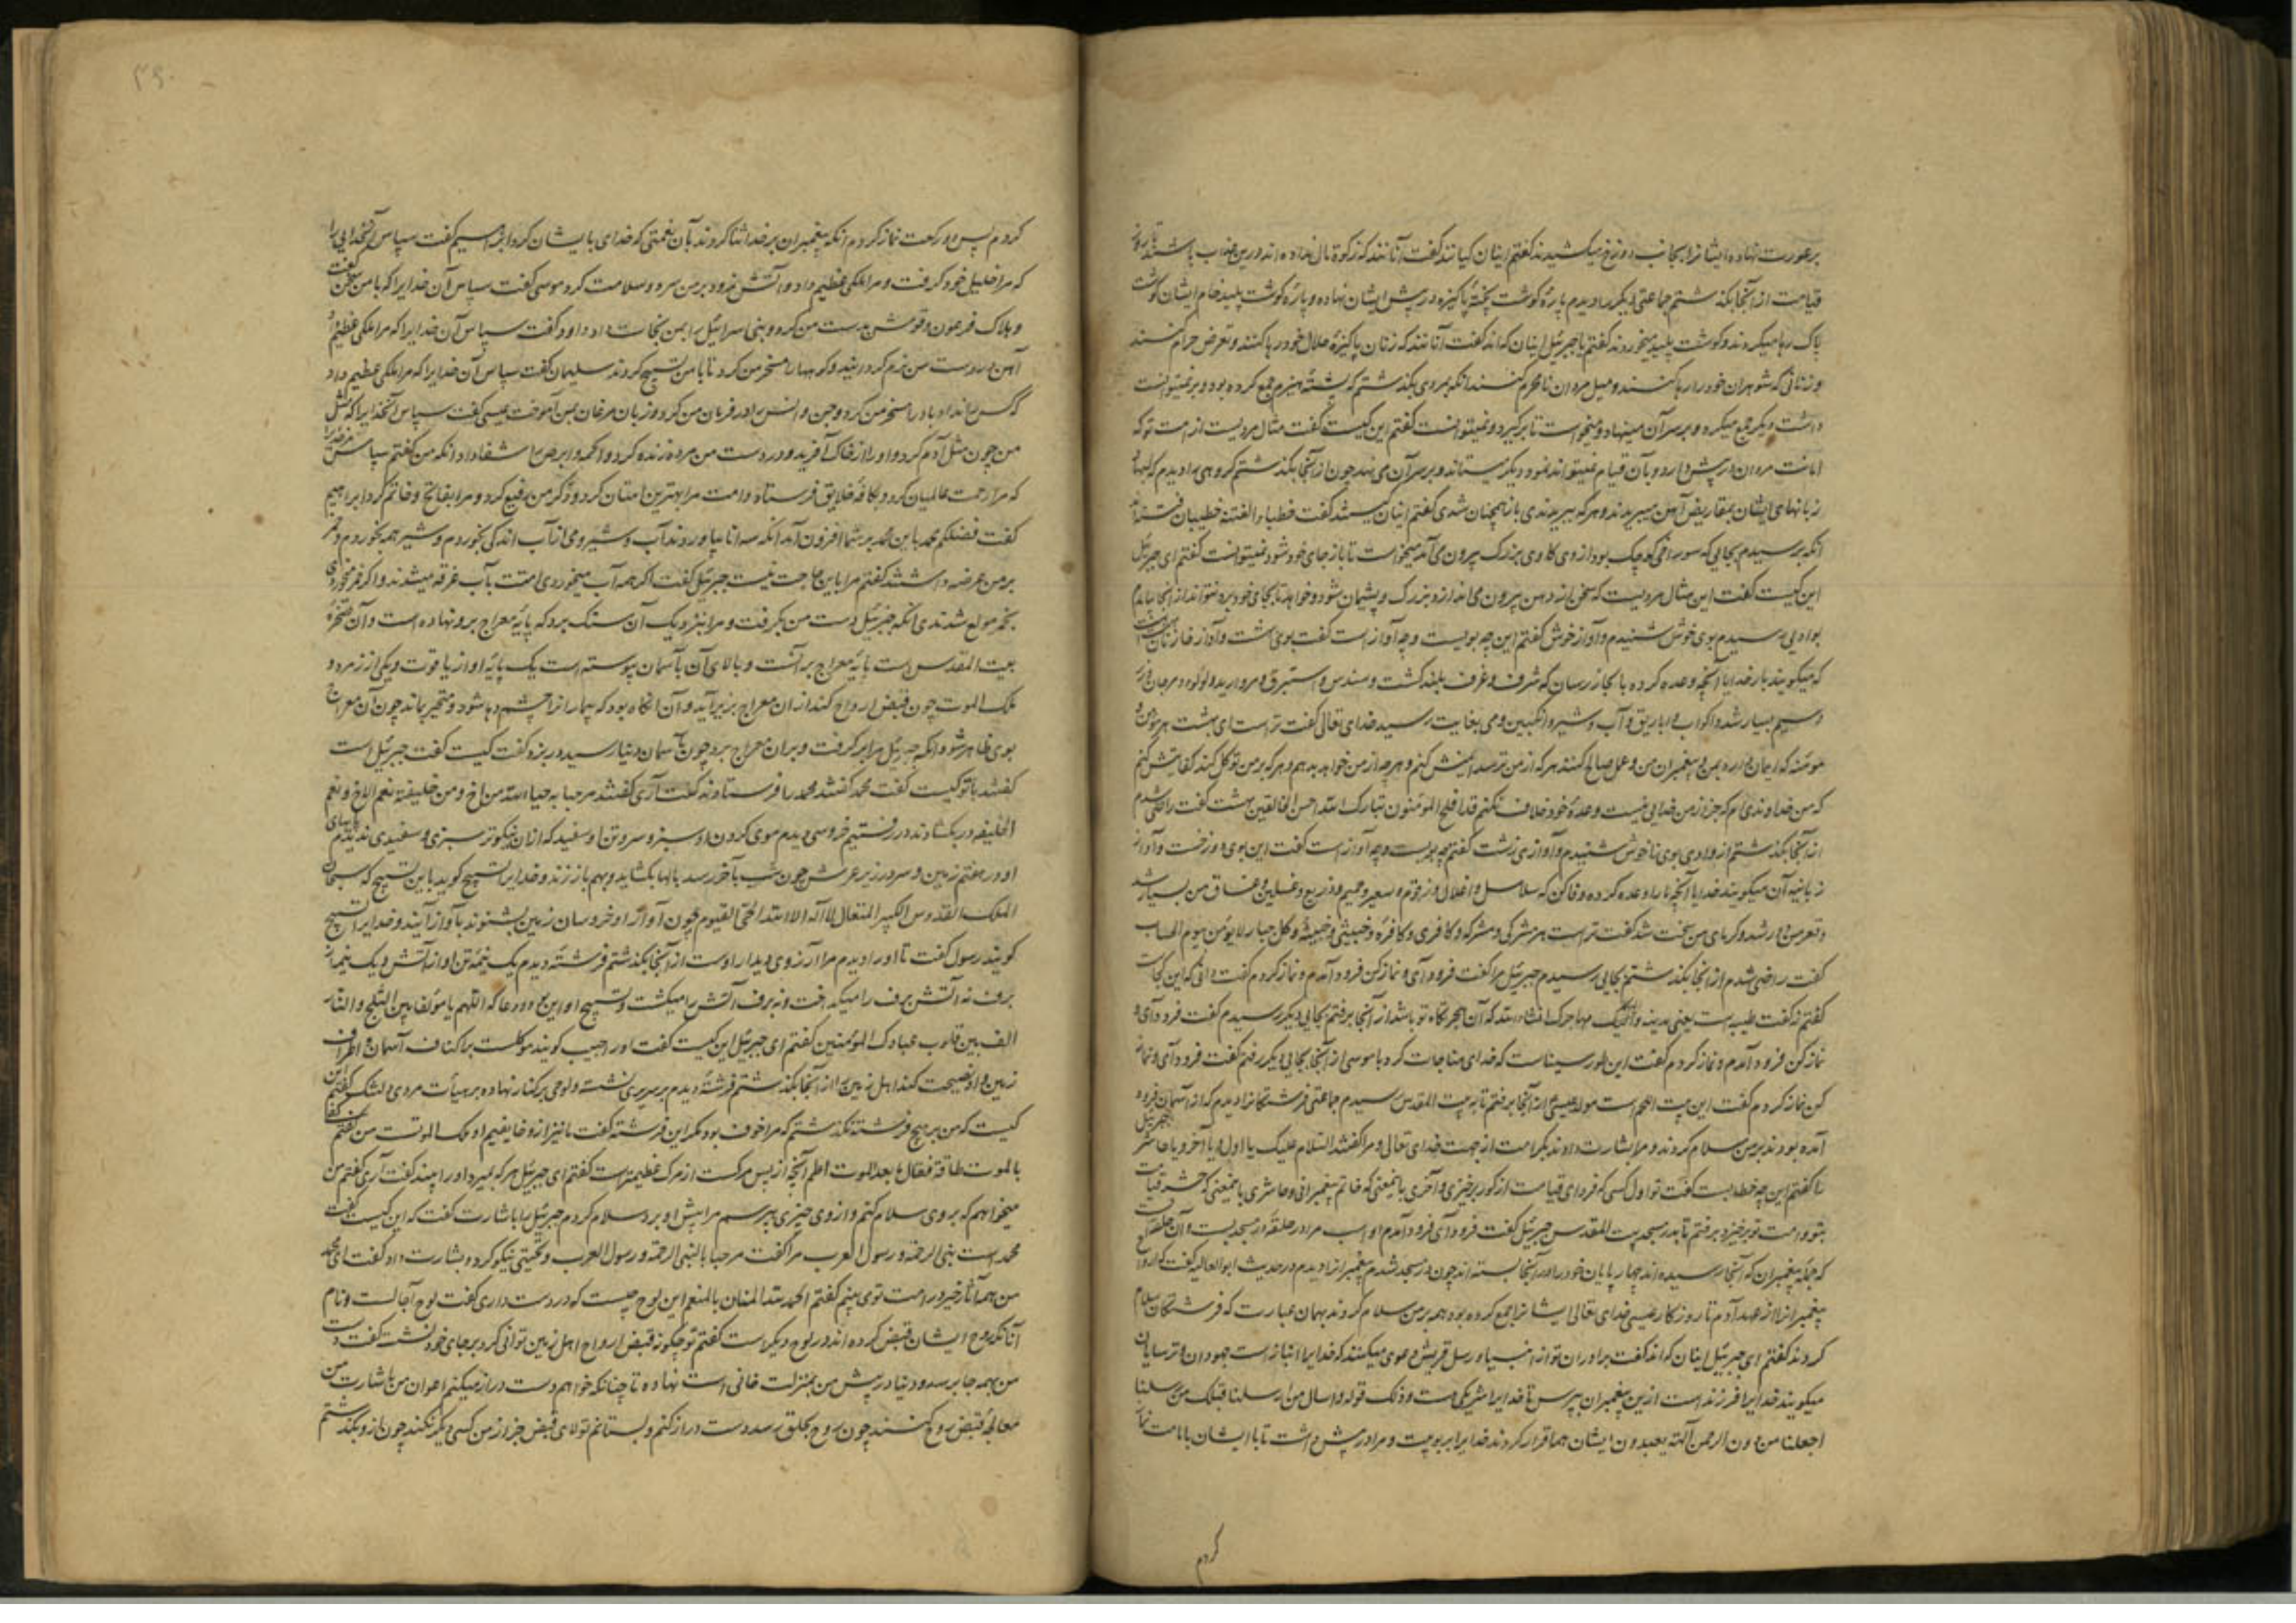 بر عورت نهاده ایشانرا بجانب دوزخ میکشیدند گفتم اینان کیانند گفت آنانند که زکوة مال نداده اند درین عذاب باشند تا روز
قیامت از آنجا بگذشتم جماعتی دیگر را دیدم پارهٔ گوشت پختهٔ پاکیزه در پیش ایشان نهاده و پارهٔ گوشت پلید خام ایشان گوشت
پاک رها میکردند و گوشت پلید میخوردند گفتم یا جبرئیل اینان که اند گفت آنانند که زنان پاکیزهٔ حلال خود رها کنند و تعرض حرام کنند
و زنانی که شوهران خود را رها کنند و میل مردان نامحرم کنند آنکه بمردی بگذشتم که پشتهٔ هیزم جمع کرده بود و بر نمیتوانست
داشت دیگر جمع میکرد و بر سر آن مینهاد و میخواست تا بر گیرد و نمیتوانست گفتم این کیست گفت مثال مردیست از امت تو که
امانت مردمان در پیش دارد و بآن قیام نمیتواند نمود و دیگر میستاند و بر سر آن می نهد چون از آنجا بگذشتم گروهی را دیدم که لبها و
زبانهای ایشان بمقاریض آهن میبریدند و هر گه ببریدندی باز همچنان شدی گفتم اینان کیستند گفت خطباء الفتنة خطیبان فتنه اند
آنکه برسیدم بجایی که سوراخی کوچک بود از وی گاوی بزرگ بیرون می آمد میخواست تا باز جای خود شود نمیتوانست گفتم ای جبرئیل
این کیست گفت این مثال مردیست که سخن از دهن بیرون می اندازد بزرگ و پشیمان شود و خواهد تا بجای خود برد نتواند از آنجا بیامدم
بوادیی رسیدم بوی خوش شنیدم و آواز خوش گفتم این چه بویست و چه آوازست گفت بوی بهشت و آواز خازنان
که میگویند بار خدایا آنچه وعده کرده با بجا ز رسان که شرف و غرف بلند گشت و سندس و استبرق و مروارید و لؤلؤ و مرجان و زر
و سیم بسیار شد و اکواب و اباریق و آب و شیر و انگبین و می بغایت رسید خدای تعالی گفت تراست ای بهشت هر مؤمن و
مؤمنه که ایمان دارد بمن و پیغمبران من و عمل صالح کند هر که از من ترسد ایمنش کنم و هر چه از من خواهد بدهم و هر که بر من توکل کند کفایتش کنم
که من خداوندی ام که جز از من خدایی نیست و وعدهٔ خود خلاف نکنم قد افلح المؤمنون تبارک الله احسن الخالقین بهشت گفت راضی شدم
از آنجا بگذشتم از وادی بوی ناخوش شنیدم و آوازی زشت گفتم چه بویست و چه آوازست گفت این بوی دوزخست و آواز
زبانیه آن میگویند خدایا آنچه ما را وعده کرده وفا کن که سلاسل و اغلال و زقوم و سعیر و حمیم و ضریع و غسلین و غساق من بسیار شد
و قعر من دور شد و گرمای من سخت شد گفت تراست هر مشرکی و مشرکه و کافری و کافره و خبیثی و خبیثه و کل جبار لا یؤمن بیوم الحساب
گفت راضی شدم از آنجا بگذشتم بجایی رسیدم جبرئیل مرا گفت فرود آی و نماز کن فرود آمدم و نماز کردم گفت دانی که این کجاست
گفتم نه گفت طیبه است یعنی مدینه و الیک مهاجرک انشاء الله که آن هجرتگاه تو باشد از آنجا برفتم بجایی دیگر رسیدم گفت فرود آی و
نماز کن فرود آمدم و نماز کردم گفت این طور سیناست که خدای مناجات کرد با موسی از آنجا بجایی دیگر رفتم گفت فرود آی و نماز
کن نماز کردم گفت این بیت اللحم است مولد عیسی از آنجا برفتم تا به بیت المقدس رسیدم جماعتی فرشتگانرا دیدم که از آسمان فرود
آمده بودند بر من سلام کردند و مرا بشارت دادند بکرامت از جهت خدای تعالی و مرا گفتند السلام علیک یا اول و یا آخر و یا حاشر جبرئیل
را گفتم این چه خطابست گفت تو اول کسی که فردای قیامت از گور برخیزی و آخری باینمعنی که خاتم پیغمبرانی و حاشری باینمعنی که حشر قیامت
بتو و امت تو برخیزد برفتم تا بدر مسجد بیت المقدس جبرئیل گفت فرود آی فرود آمدم او اسب مرا در حلقهٔ در مسجد بست و آن حلقه
که جملهٔ پیغمبران که آنجا رسیده اند چهارپایان خود را در آنجا بسته اند چون در مسجد شدم پیغمبرانرا دیدم در حدیث ابو العالیه گفت که ارواح
پیغمبرانرا از عهد آدم تا روزگار عیسی خدای تعالی ایشانرا جمع کرده بود همه بر من سلام کردند بهمان عبارت که فرشتگان سلام
کردند گفتم ای جبرئیل اینان که اند گفت برادران تو از انبیاء و رسل قریش دعوی میکنند که خدایرا انبازست جهودان و ترسایان
میگویند خدایرا فرزندست ازین پیغمبران بپرس تا خدایرا شریکی هست و ذلک قوله و اسأل من ارسلنا قبلک من رسلنا
اجعلنا من دون الرحمن آلهة یعبدون ایشان همه اقرار کردند خدایرا بربوبیت و مرا در پیش داشت تا با ایشان بامامت نماز
کردم
کردم پس دو رکعت نماز کردم آنکه پیغمبران بر خدا ثنا کردند بآن نعمتی که خدای با ایشان کرد ابراهیم گفت سپاس آنخدایی را
که مرا خلیل خود گرفت و مرا ملکی عظیم داد و آتش نمرود بر من سرد و سلامت کرد موسی گفت سپاس آن خدایرا که با من سخن گفت
و هلاک فرعون و قومش بدست من کرد و بنی اسرائیل را بمن نجات داد داود گفت سپاس آن خدایرا که مرا ملکی عظیم داد
آهن در دست من نرم گردانید و کوهها را مسخر من کرد تا با من تسبیح کردند سلیمان گفت سپاس آن خدایرا که مرا ملکی عظیم داد
که کس را نداد باد را مسخر من کرد و جن و انس را در فرمان من کرد و زبان مرغان بمن آموخت عیسی گفت سپاس آنخدایرا که مثل
من چون مثل آدم کرد و او را از خاک آفرید و در دست من مرده زنده کرد و اکمه و ابرص را شفا داد آنکه من گفتم سپاس مر خدایرا
که مرا رحمت عالمیان کرد و بکافهٔ خلایق فرستاد و امت مرا بهترین امتان کرد و ذکر من رفیع کرد و مرا بفاتح و خاتم کرد ابراهیم
گفت فضلکم محمد باین محمد بر شما افزون آمد آنکه سه انا بیاوردند آب و شیر و می از آب اندکی بخوردم و شیر همه بخوردم و خمر
بر من عرضه داشتند گفتم مرا باین حاجت نیست جبرئیل گفت اگر همه آب میخوردی امتت بآب غرقه میشدند و اگر خمر میخوردی
بخمر مولع شدندی آنکه جبرئیل دست من بگرفت و مرا بنزدیک آن سنگ برد که پایهٔ معراج برو نهاده است و آن صخرهٔ
بیت المقدس است پایهٔ معراج بر آنست و بالای آن بآسمان پیوسته است یک پایهٔ او از یاقوت و یکی از زمرد و
ملک الموت چون قبض ارواح کند از آن معراج بزیر آید و آن آنگاه بود که بیمار را چشم وا شود و متحیر بماند چون آن معراج
بوی ظاهر شود آنکه جبرئیل مرا بر گرفت و بر آن معراج برد چون بآسمان دنیا رسید در بزد گفت کیست گفت جبرئیل است
گفتند با تو کیست گفت محمد گفتند محمد را فرستادند گفت آری گفتند مرحبا به حیاه الله من اخ و من خلیفة نعم الاخ و نعم
الخلیفه در بگشادند در رفتیم خروسی دیدم موی گردن او سبز و سر و تن او سفید که از آن نیکوتر سبزی و سفیدی ندیدم پاهای
او در هفتم زمین و سر در زیر عرش چون شب بآخر رسد بالها بگشاید و بهم باز زند و خدایرا تسبیح گوید باین تسبیح که سبحان
الملک القدوس الکبیر المتعال لا اله الا الله الحی القیوم چون آواز او خروسان زمین بشنوند بآواز آیند و خدایرا تسبیح
گویند رسول گفت تا او را دیدم مرا آرزوی دیدار اوست از آنجا بگذشتم فرشتهٔ دیدم یک نیمهٔ تن او از آتش و یک نیمه از
برف نه آتش برف را میگداخت و نه برف آتش را میکشت و تسبیح او این بود و دعا که اللهم یا مؤلفا بین الثلج و النار
الف بین قلوب عبادک المؤمنین گفتم ای جبرئیل این کیست گفت او را حبیب گویند موکلست بر اکناف آسمان و اطراف
زمین و او نصیحت کند اهل زمین را از آنجا بگذشتم فرشتهٔ دیدم بر سریری نشسته و لوحی بر کنار نهاده بر هیأت مردی دلتنگ گفتم این
کیست که من بر هیچ فرشته نگذشتم که مرا خوف بود مگر این فرشته گفت ما نیز ازو خایفیم او ملک الموتست من گفتم کفا
بالموت طاقة فقال ما بعد الموت اطم آنچه از پس مرگست از مرگ عظیمترست گفتم ای جبرئیل هر که بمیرد او را ببیند گفت آری گفتم من
میخواهم که بر وی سلام کنم و از وی چیزی بپرسم مرا پیش او برد سلام کردم جبرئیل را باشارت گفت که این کیست گفت
محمد است نبی الرحمه و رسول العرب مرا گفت مرحبا بالنبی الرحمة و رسول العرب و تحیتی نیکو کرد و بشارت داد گفت ای محمد
من همه آثار خیر در امت تو می بینم گفتم الحمد لله المنان بالمنعم این لوح چیست که در دست داری گفت لوح آجالست و نام
آنانکه روح ایشان قبض کرده اند در لوح دیگر است گفتم تو چگونه قبض ارواح اهل زمین توانی کرد بر جای خود نشسته گفت دست
من بهمه جا برسد و دنیا در پیش من بمنزلت خانی است نهاده تا چنانکه خواهم دست دراز میکنم اعوان من باشارت من
معالجهٔ قبض روح کنند چون روح بحلق رسد دست دراز کنم و بستانم تولای قبض جز از من کسی دیگر نکند چون ازو بگذشتم